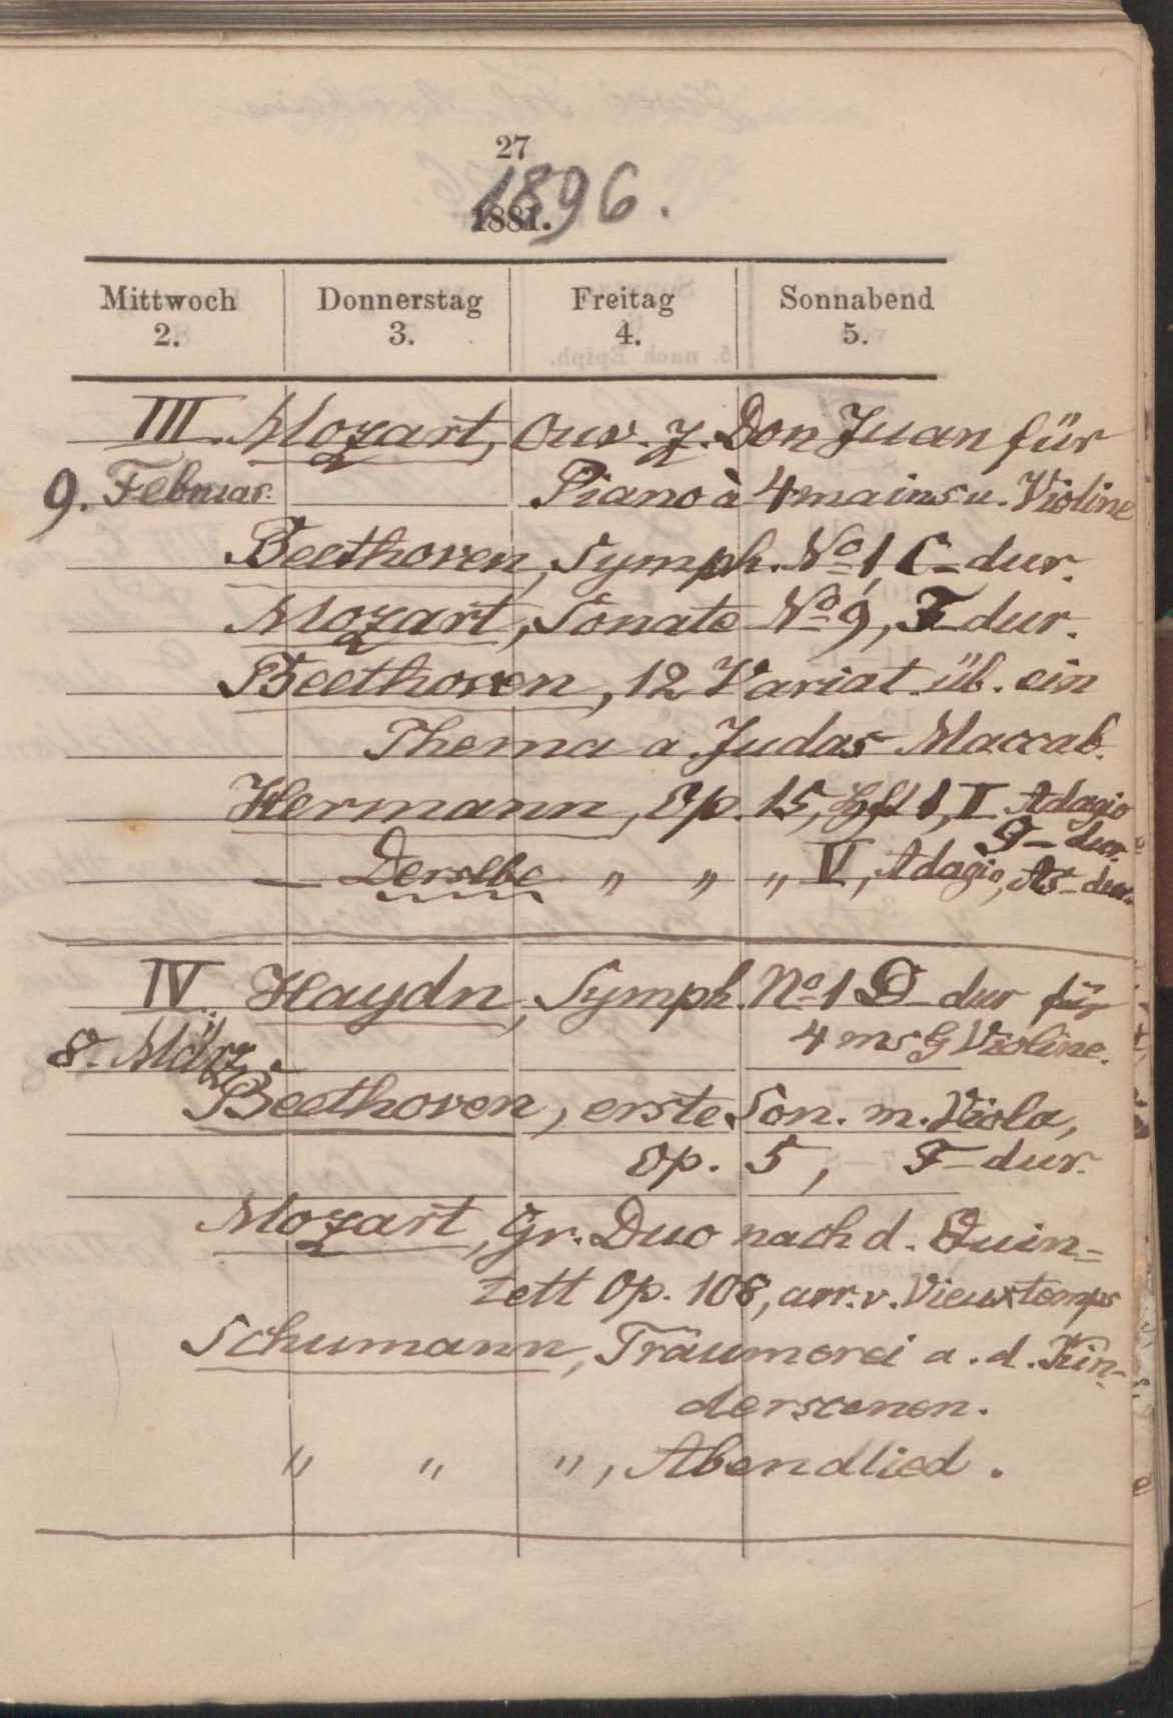 27
1896.
1881.
Mittwoch Donnerstag Freitag Sonnabend
2. 3. 4. 5.
III. Mozart, Ouv. z. Don Juan für
9. Februar. Piano à 4 mains u. Violine
Beethoven, Symph. No 1, C-dur.
Mozart, Sonate No 9, F dur.
Beethoven, 12 Variat. üb. ein
Thema a. Judas Maccab.
Hermann, Op. 15, Hft 1, I. Adagio
F-dur.
— Derselbe " " " V, Adagio, As-dur.
IV. Haydn, Symph. No 1 D-dur für
8. März. 4 ms & Violine.
Beethoven, erste Son. m. Viola,
Op. 5, F-dur.
Mozart, gr. Duo nach d. Quin=
tett Op. 108, arr. v. Vieuxtemps
Schumann, Träumerei a. d. Kin-
derscenen.
" " ", Abendlied.